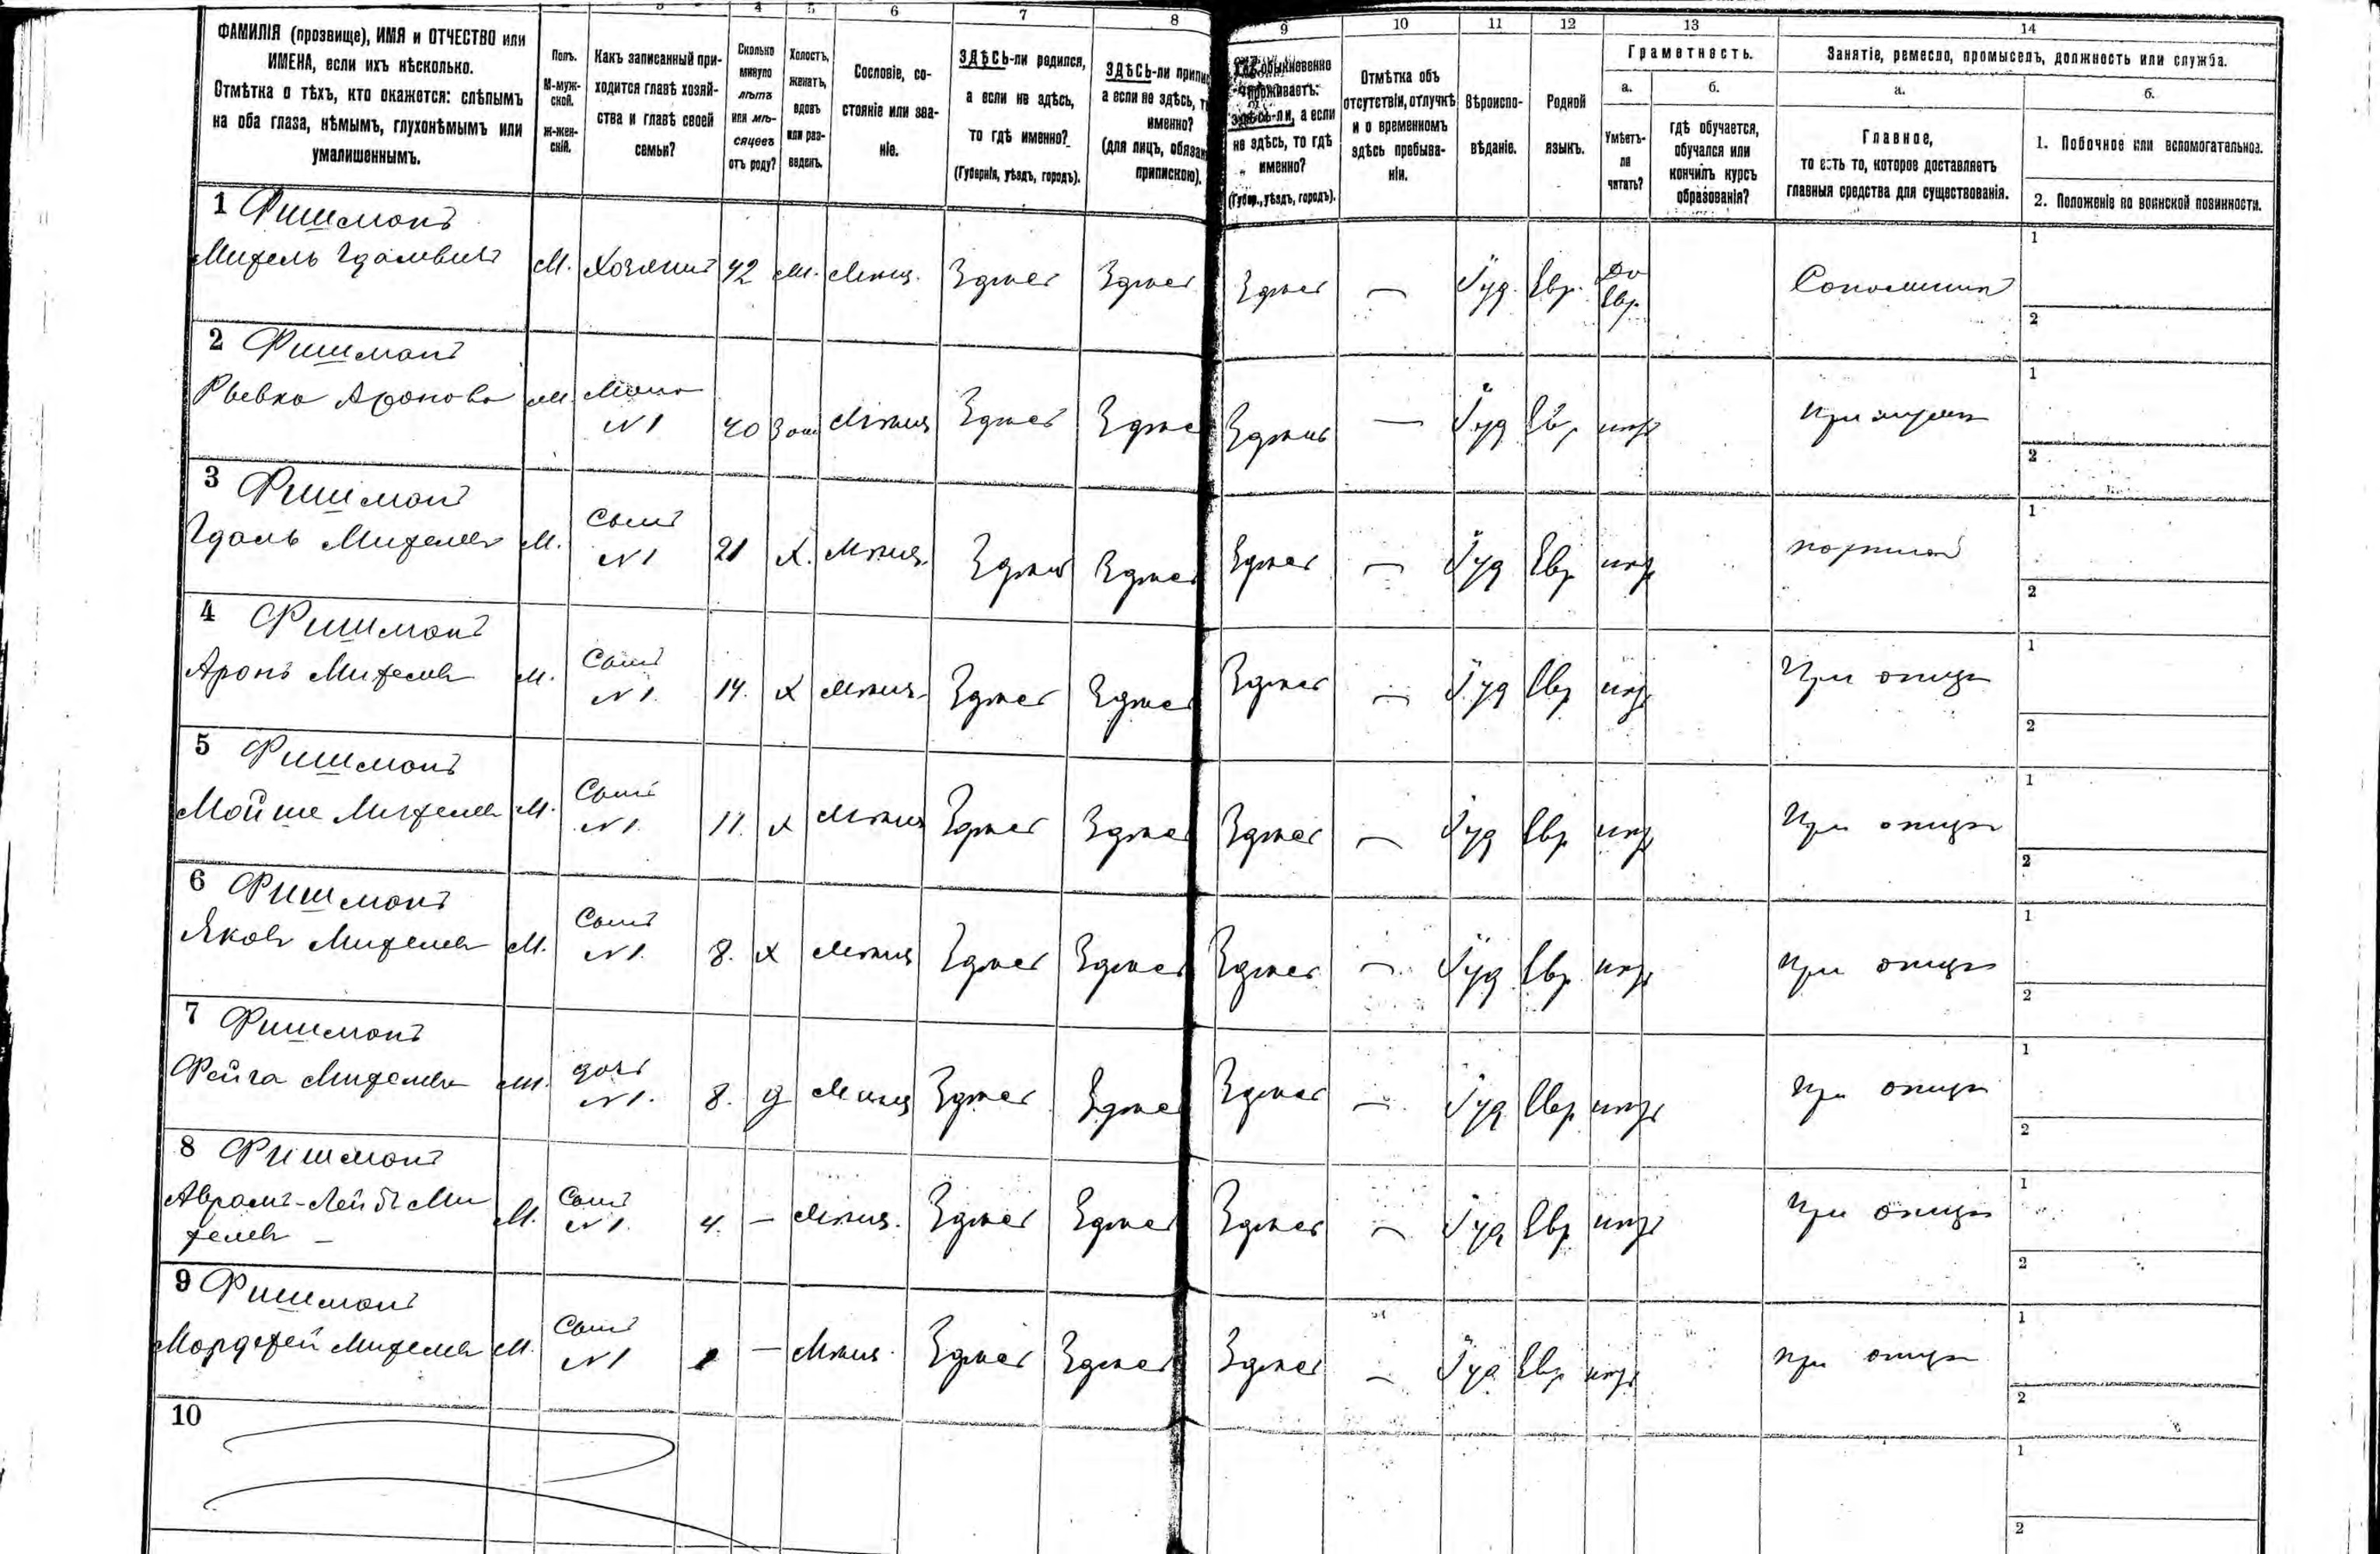 3 4 5 6 7 8 9 10 11 12 13 14
ФАМИЛІЯ (прозвище), ИМЯ и ОТЧЕСТВО или
ИМЕНА, если ихъ нѣсколько.
Отмѣтка о тѣхъ, кто окажется: слѣпымъ
на оба глаза, нѣмымъ, глухонѣмымъ или
умалишеннымъ.
Полъ.
М-муж-
ской.
Ж-жен-
скій.
Какъ записанный при-
ходится главѣ хозяй-
ства и главѣ своей
семьи?
Сколько
минуло
лѣтъ
или мѣ-
сяцевъ
отъ роду?
Холостъ,
женатъ,
вдовъ
или раз-
веденъ.
Сословіе, со-
стояніе или зва-
ніе.
ЗДѢСЬ-ли родился,
а если не здѣсь,
то гдѣ именно?
(Губернія, уѣздъ, городъ).
ЗДѢСЬ-ли припис
а если не здѣсь, т
именно?
(для лицъ, обязан
припискою).
Гдѣ обыкновенно
проживаетъ:
здѣсь-ли, а если
не здѣсь, то гдѣ
именно?
(Губер., уѣздъ, городъ).
Отмѣтка объ
отсутствіи, отлучкѣ
и о временномъ
здѣсь пребыва-
ніи.
Вѣроиспо-
вѣданіе.
Родной
языкъ.
Грамотность.
а.
Умѣетъ-
ли
читать?
б.
гдѣ обучается,
обучался или
кончилъ курсъ
образованія?
Занятіе, ремесло, промыселъ, должность или служба.
а.
Главное,
то есть то, которое доставляетъ
главныя средства для существованія.
б.
1. Побочное или вспомогательное.
2. Положеніе по воинской повинности.
1 Фишманъ
М. Хозяинъ 42 М. Мѣщ. Здѣсь Здѣсь Здѣсь — Іуд. Евр. Евр. 1
2
2 Фишманъ
Рывка Аронова Жена
N 1 40 Зам Мѣщ Здѣсь Здѣсь Здѣсь — Іуд Евр нѣтъ При мужѣ 1
2
3 Фишманъ
Гдаль Михелев М. Сынъ
N 1 21 Х. Мѣщ. Здѣсь Здѣсь Здѣсь — Іуд Евр нѣтъ портной 1
2
4 Фишманъ
Аронъ Михелев М. Сынъ
N 1. 14. Х Мѣщ. Здѣсь Здѣсь Здѣсь — Іуд Евр нѣтъ При отцѣ 1
2
5 Фишманъ
Мойше Михелев М. Сынъ
N 1. 11. Х Мѣщ Здѣсь Здѣсь Здѣсь — Іуд Евр нѣтъ При отцѣ 1
2
6 Фишманъ
Яковъ Михелев М. Сынъ
N 1. 8. Х Мѣщ Здѣсь Здѣсь Здѣсь — Іуд Евр. нѣтъ При отцѣ 1
2
7 Фишманъ
Фейга Михелев дочь
N 1. 8. д Мѣщ Здѣсь Здѣсь Здѣсь — Іуд Евр нѣтъ При отцѣ 1
2
8 Фишманъ
Аврамъ-Лейбъ Ми
хелев — М. Сынъ
N 1. 4. — Мѣщ. Здѣсь Здѣсь Здѣсь — Іуд Евр нѣтъ При отцѣ 1
2
9 Фишманъ
Мордхей Михелев М. Сынъ
N 1 — Мѣщ. Здѣсь Здѣсь Здѣсь — Іуд Евр нѣтъ При отцѣ 1
2
10
1
2